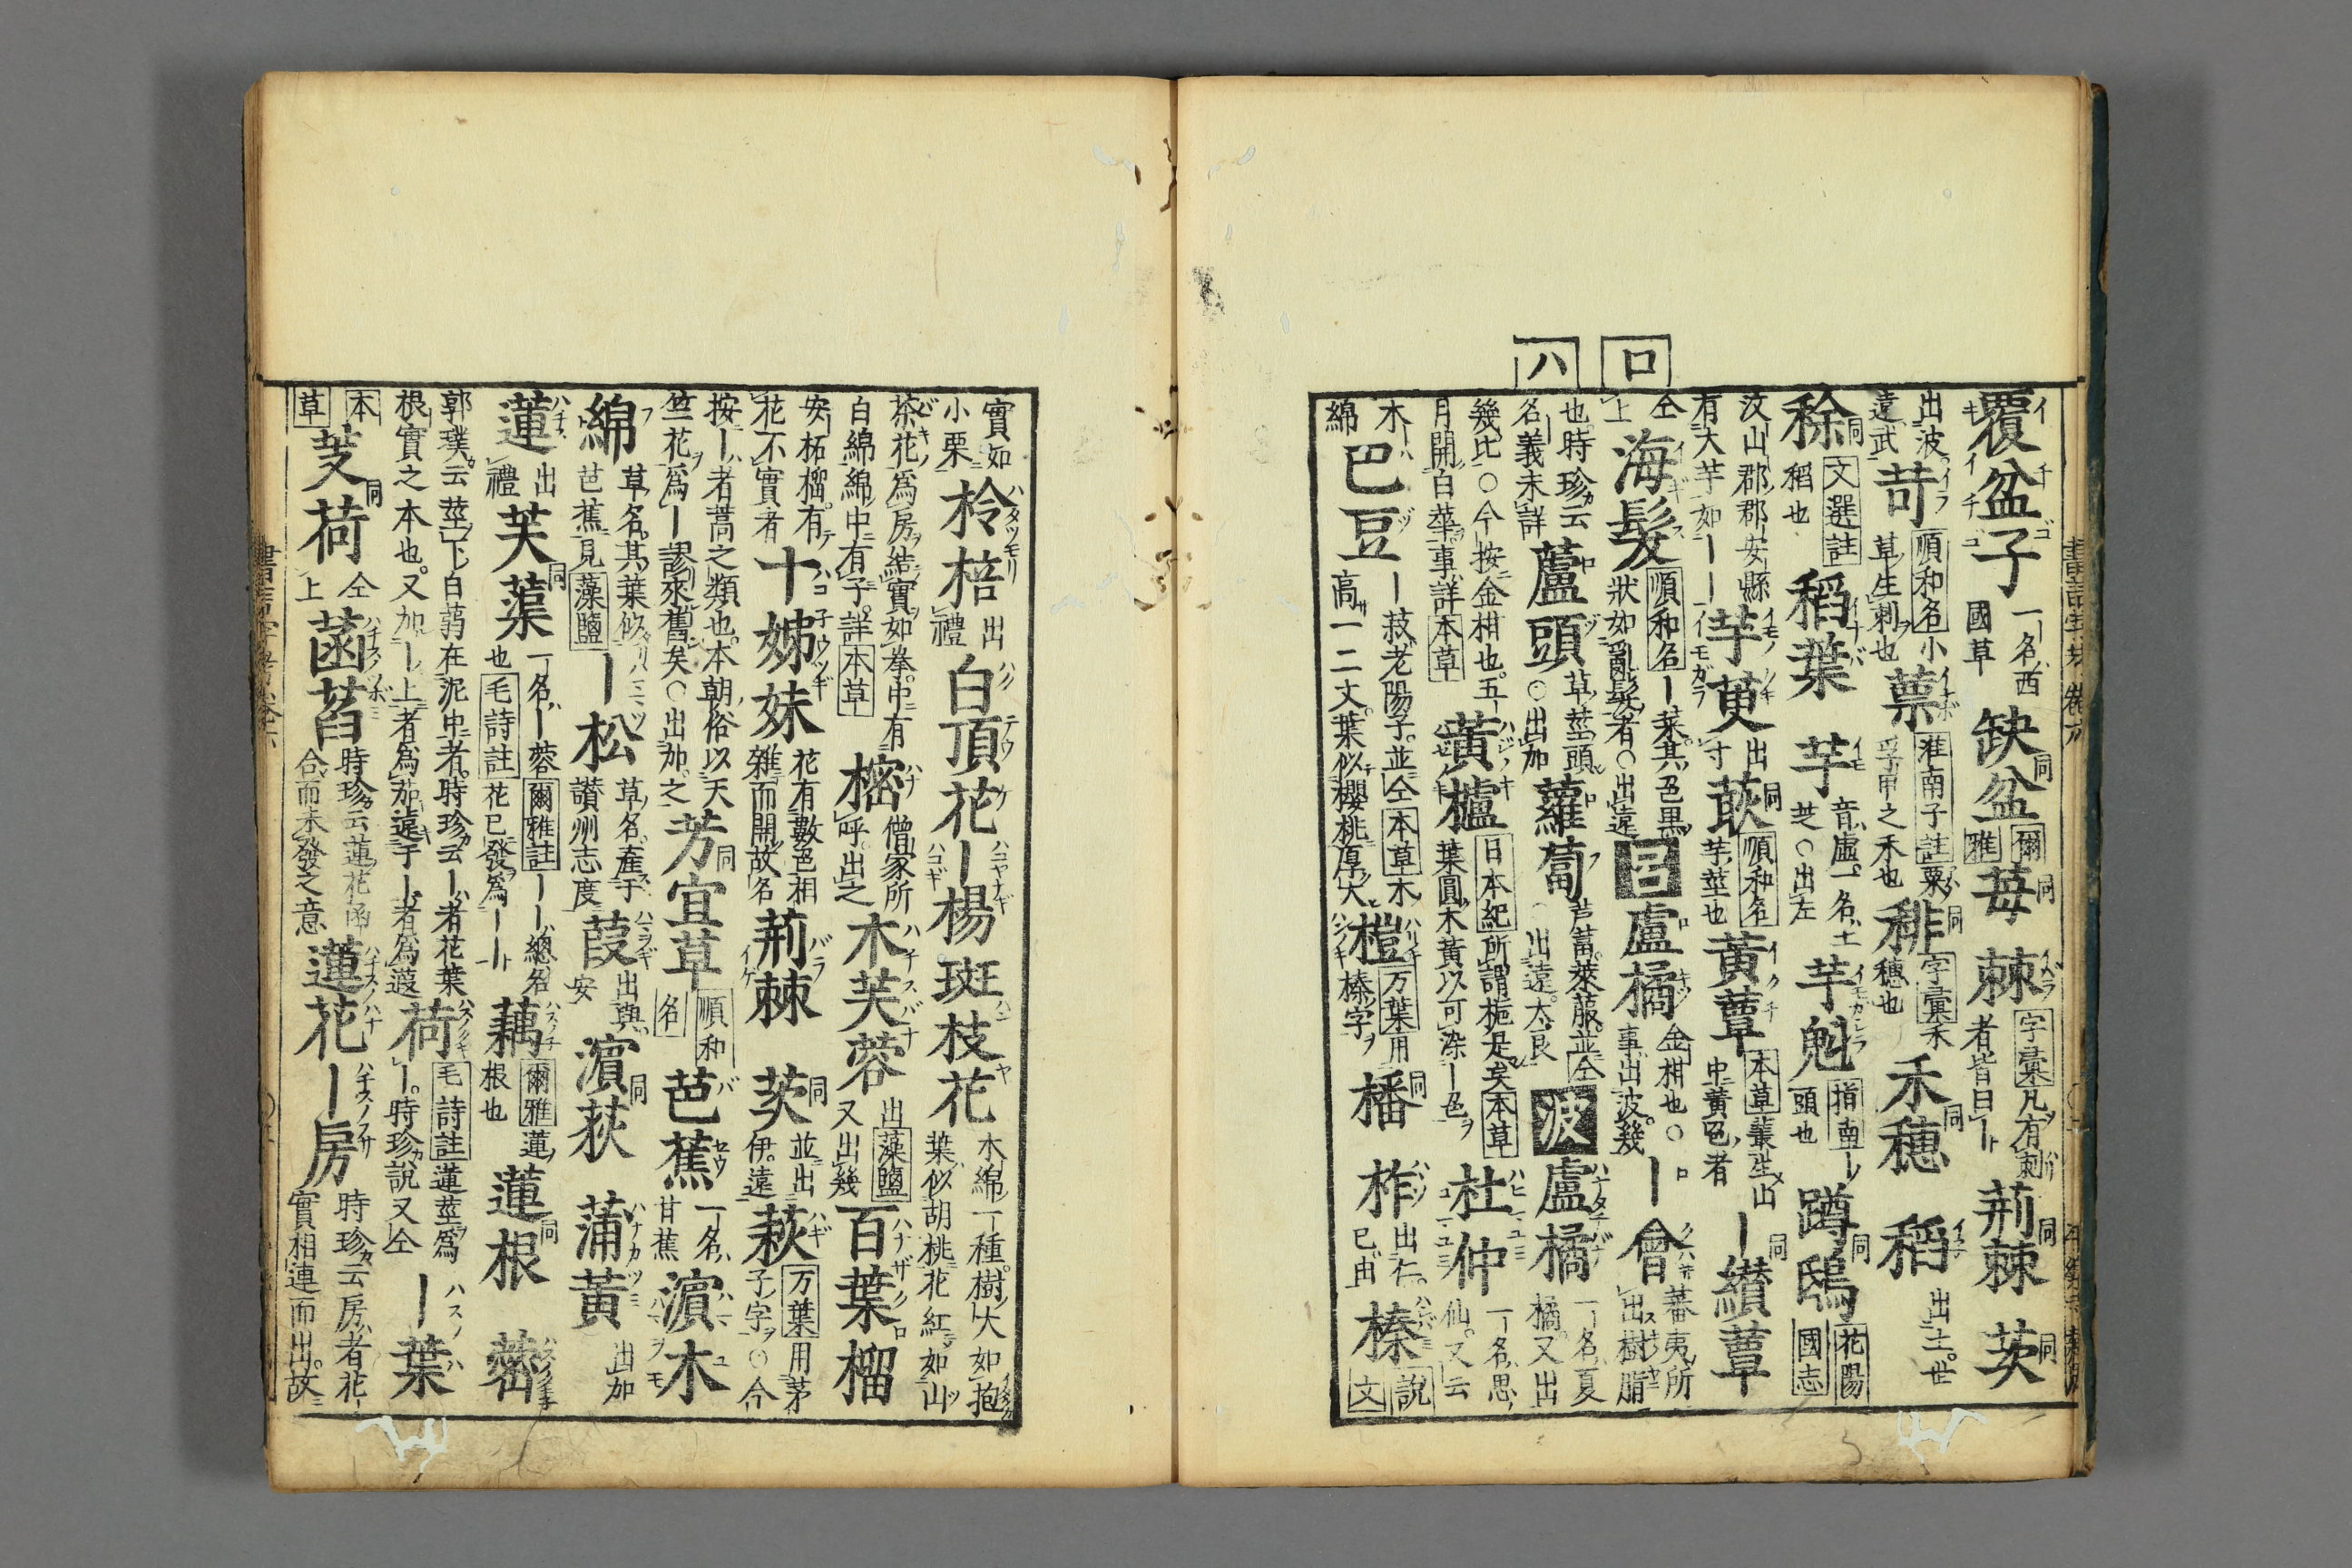 ロ
ハ
覆盆子 一名西國草 缺盆 同 爾雅 苺 同 棘 字彙凡有刺者皆曰ー 荊棘 同 茨 同
出波遠武 苛 順和名小草生刺也 蔈 淮南子註粟孚甲之禾也 䅈 同 字彙禾穗也 禾穗 同 稻 出土世
稌 同 文選註稻也 稻葉 芋 音虛一名土芝○出左 芋魁 指南ー頭也 蹲鴟 同 花陽國志
汶山郡郡安縣有大芋如ーー 芋茰 出寸 䕸 同 順和名芋莖也 黃蕈 本草叢生山中黃色者 ー纉蕈 同
仝上 海髮 順和名ー菜其色黒狀如亂髮者○出遠 呂 盧橘 金柑也○事出波幾 ー會 蕃夷所出樹脂
也時珍云名義未詳 蘆頭 草莖頭○出加 蘿蔔 芦萉萊菔並仝出遠太良 波 盧橘 一名夏橘又出
幾比○今按金柑也五月開白華事詳本草 黃櫨 日本紀所謂梔是矣本草葉圓木黃以可染ー色 杜仲 一名思仙又云
木綿 巴豆 ー菽老陽子並仝本草木高一二丈葉似櫻桃厚大 榿 万葉用榛字 橎 同 柞 出仁已由 榛 說文
實如小栗 柃棓 出禮 白頂花 ー楊 斑枝花 木綿一種樹大如抱葉似胡桃花紅如山
茶花為房結實如拳中有白綿綿中有子詳本草 樒 僧家所呼出之 木芙蓉 出藻鹽又出幾 百葉榴
安柘榴有花不實者 十姊妹 花有數色相雜而開故名 荊棘 茨 同 並出伊遠 萩 万葉用茅子字○今
按ー者蒿之類也本朝俗以天竺花為ー謬來舊矣○出加之 芳宜草 同 順和名 芭蕉 一名甘蕉 濵木
綿 草名其葉似芭蕉見藻鹽 ー松 草名產于讚州志度 葭 出與安 濵荻 同 蒲黃 出加
蓮 出禮 芙蕖 同 一名ー蓉也 爾雅註ーー總名 毛詩註花已發為ーー 藕 爾雅蓮根也 蓮根 同 蔤
郭璞云莖下白蒻在泥中者時珍云ー者花葉根實之本也又加ー上者為茄遠于ー者為蕸 荷 毛詩註蓮莖為ー時珍說又仝 ー葉
本草 芰荷 同 仝上 菡萏 時珍云蓮花函合而未發之意 蓮花 ー房 時珍云房者花實相連而出故